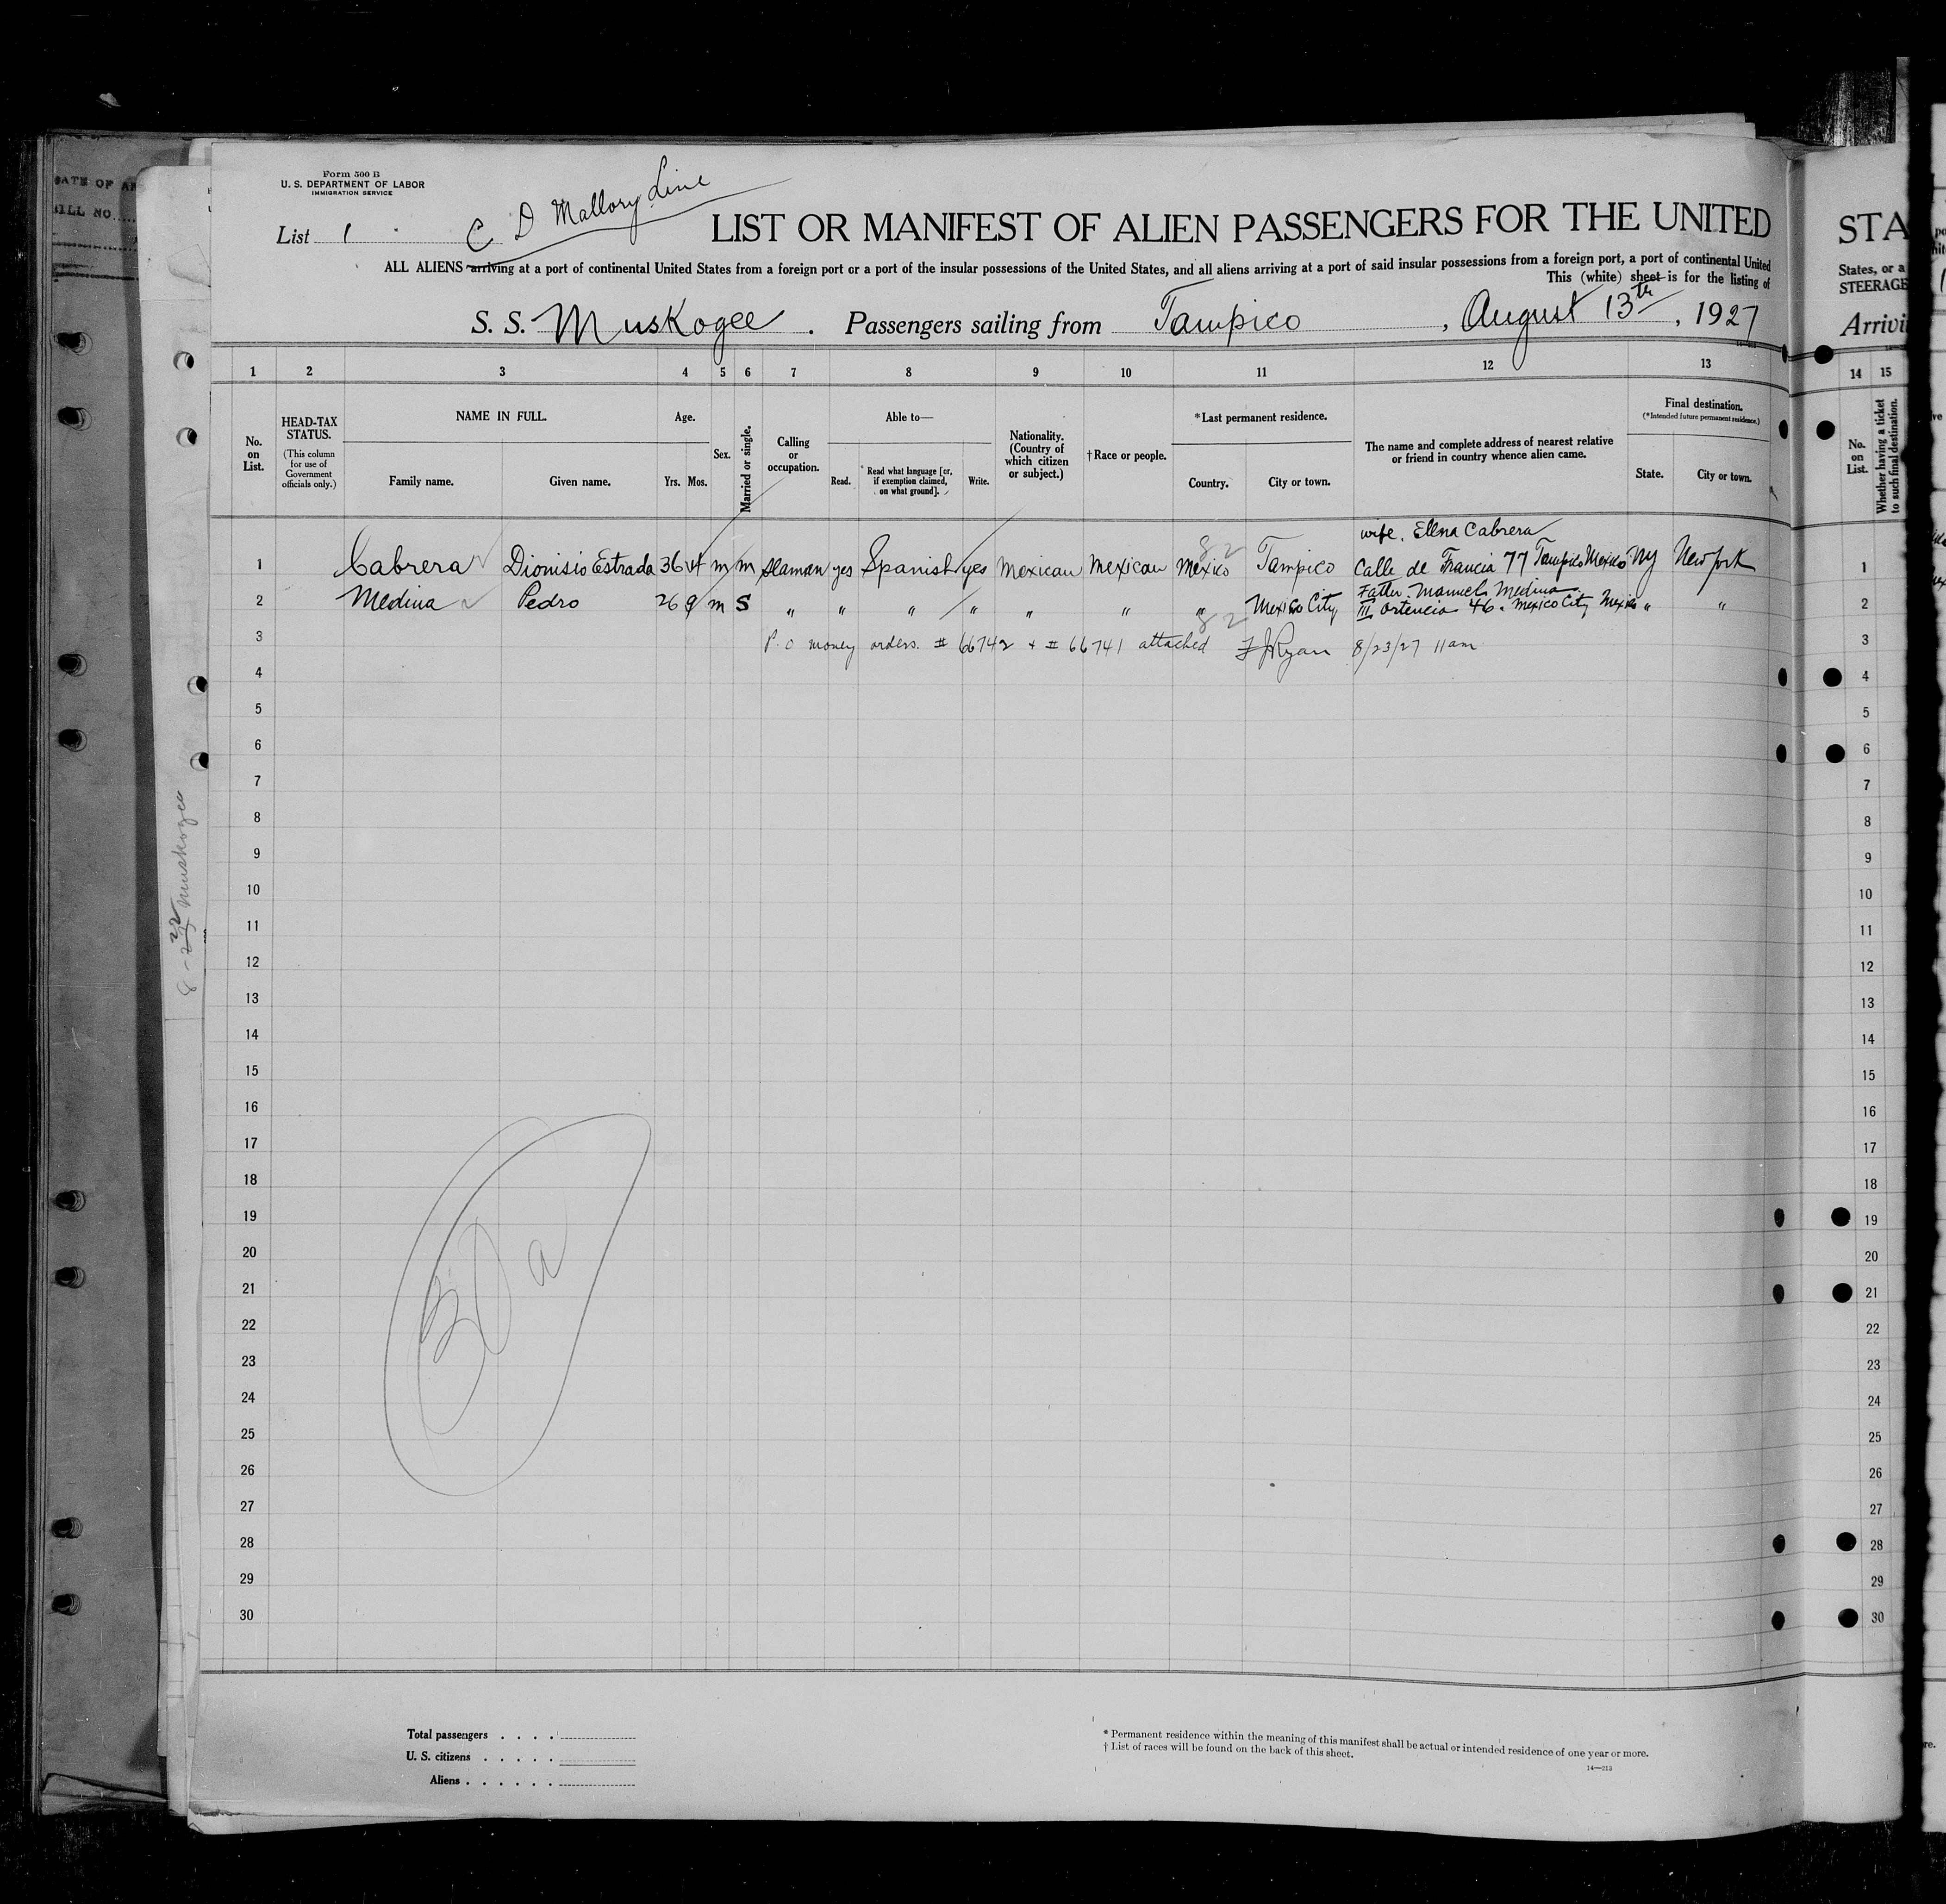 Form 500 B
U. S. DEPARTMENT OF LABOR
IMMIGRATION SERVICE
List 1
C D Mallory Line
LIST OR MANIFEST OF ALIEN PASSENGERS FOR THE UNITED
ALL ALIENS arriving at a port of continental United States from a foreign port or a port of the insular possessions of the United States, and all aliens arriving at a port of said insular possessions from a foreign port, a port of continental United
This (white) sheet is for the listing of
S. S. Muskogee . Passengers sailing from Tampico , August 13th , 1927
1 2 3 4 5 6 7 8 9 10 11 12 13
No. on List.
HEAD-TAX STATUS.
(This column for use of Government officials only.)
NAME IN FULL.
Family name. Given name.
Age.
Yrs. Mos.
Sex.
Married or single.
Calling or occupation.
Able to—
Read. Read what language [or, if exemption claimed, on what ground]. Write.
Nationality. (Country of which citizen or subject.)
† Race or people.
*Last permanent residence.
Country. City or town.
The name and complete address of nearest relative or friend in country whence alien came.
Final destination.
(*Intended future permanent residence.)
State. City or town.
wife. Elena Cabrera
1 Cabrera Dionisio Estrada 36 4 m m Seaman yes Spanish yes Mexican Mexican Mexico Tampico Calle de Francia 77 Tampico Mexico NY New York
82
Father. Manuel Medina
2 Medina Pedro 26 9 m S " " " " " " " Mexico City III Ortencia 46. Mexico City Mexico " "
82
3 P.O money orders. # 66742 + # 66741 attached FJRyan 8/23/27 11am
4
5
6
7
8
9
10
11
12
13
14
15
16
17
18
19
20
21
22
23
24
25
26
27
28
29
30
Total passengers . . . .
U. S. citizens . . . . .
Aliens . . . . . .
* Permanent residence within the meaning of this manifest shall be actual or intended residence of one year or more.
† List of races will be found on the back of this sheet.
14—213
Muskogee
BILL NO.
STA
States, or a
STEERAGE
Arrivi
14 15
No. on List.
Whether having a ticket to such final destination.
1
2
3
4
5
6
7
8
9
10
11
12
13
14
15
16
17
18
19
20
21
22
23
24
25
26
27
28
29
30